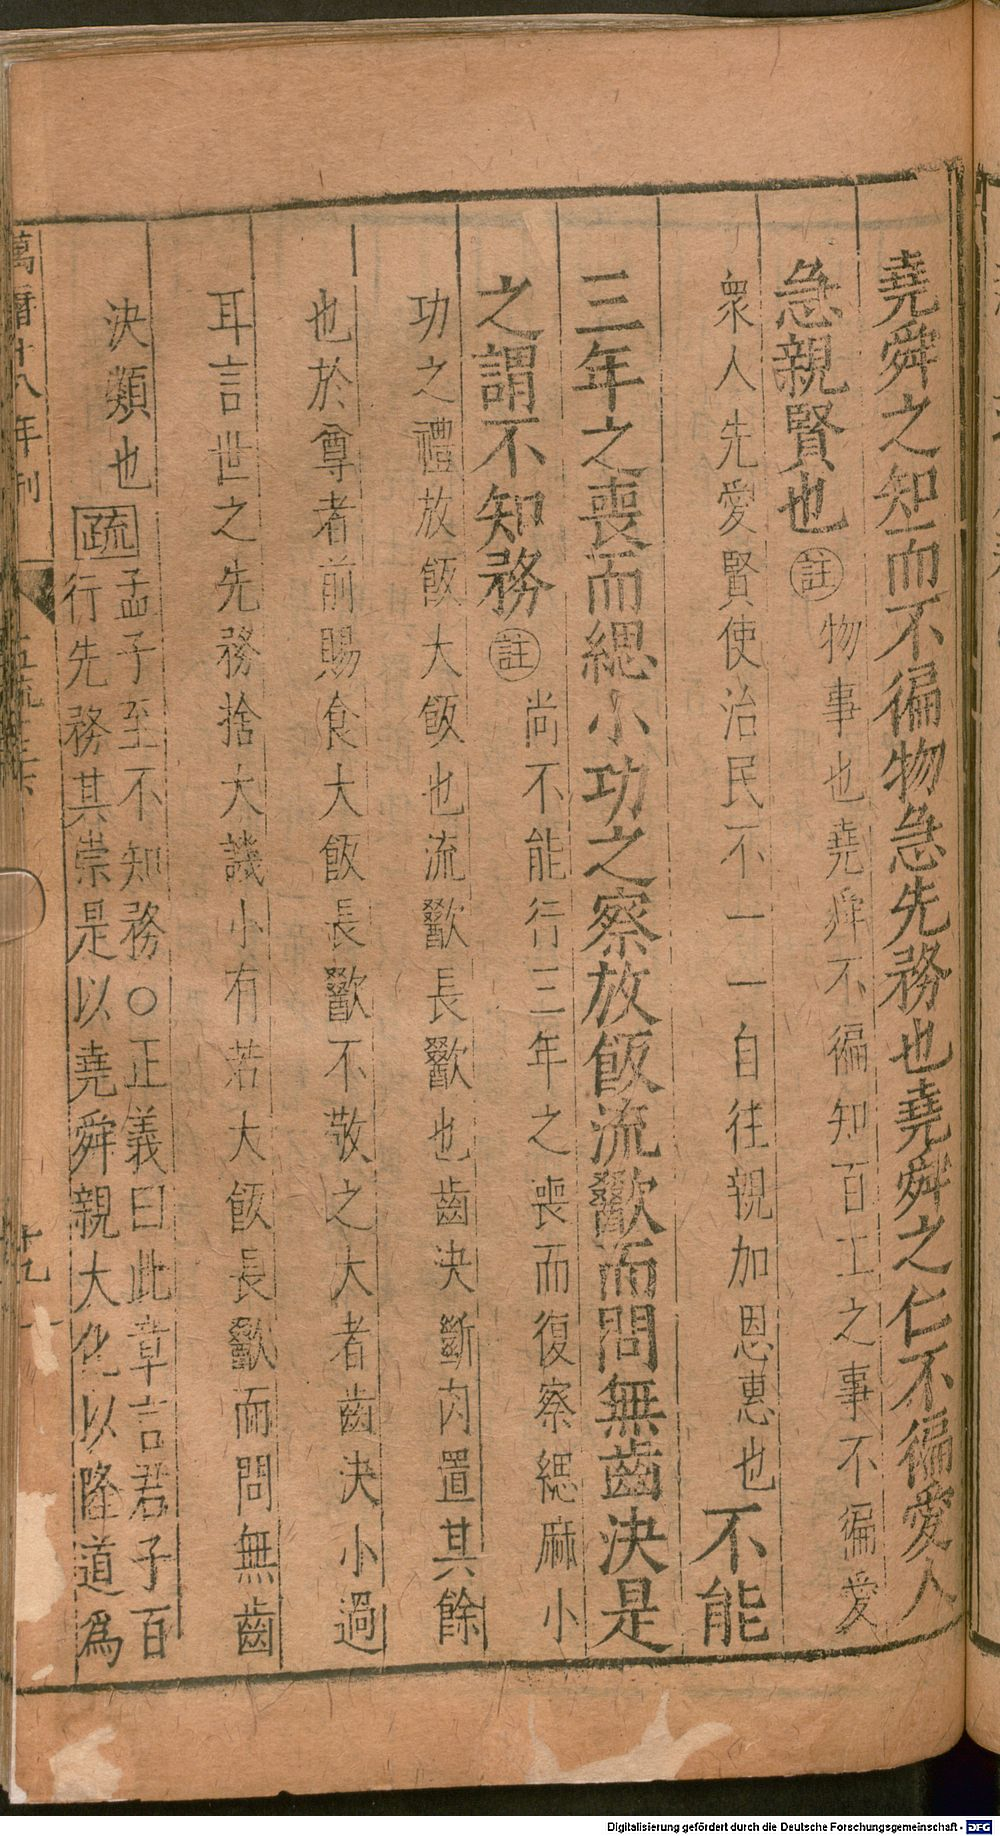 堯舜之知而不徧物急先務也堯舜之仁不徧愛人
急親賢也註物事也堯舜不徧知百工之事不徧愛
衆人先愛賢使治民不一一自往親加恩惠也不能
三年之喪而緦小功之察放飯流歠而問無齒決是
之謂不知務註尚不能行三年之喪而復察緦麻小
功之禮放飯大飯也流歠長歠也齒決斷肉置其餘
也於尊者前賜食大飯長歠不敬之大者齒決小過
耳言世之先務捨大譏小有若大飯長歠而問無齒
決類也疏孟子至不知務○正義曰此章言君子百
行先務其崇是以堯舜親大化以隆道爲
萬曆十八年刊
十九
Digitalisierung gefördert durch die Deutsche Forschungsgemeinschaft - DFG